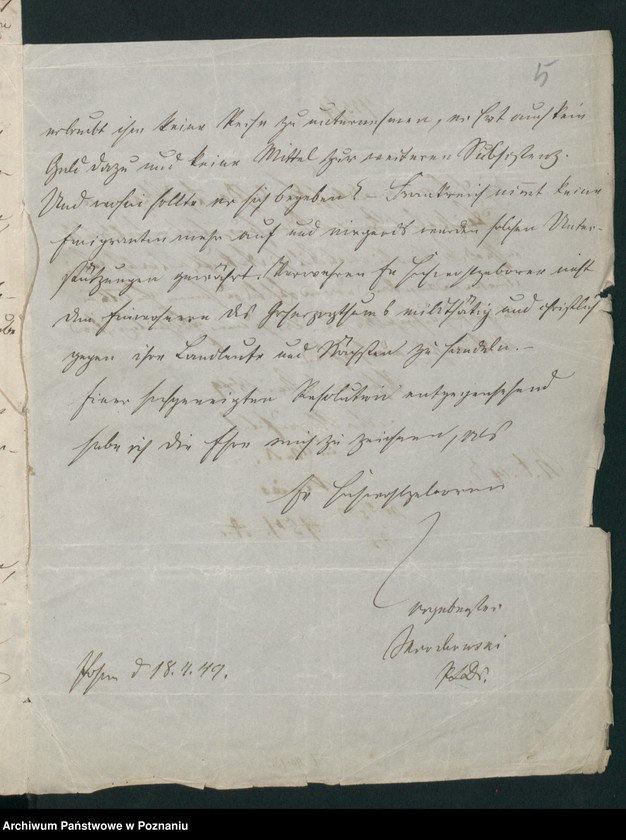 5
erlaubt ihm keine Reise zu unternehmen, er hat auch kein
Geld dazu und keine Mittel zur weiteren Subsistenz.
Und wohin sollte er sich begeben? – Frankreich nimmt keine
Emigranten mehr auf und nirgends werden solchen Unter-
stützungen gewährt. Verwehren Ew Hochwohlgeboren nicht
den Einwohnern des Großherzogthums mildthätig und christlich
gegen ihre Landleute und Nächsten zu handeln. –
Einer hochgeneigten Resolution entgegensehend
habe ich die Ehre mich zu zeichnen, als
Ew Hochwohlgeboren
ergebenster
Posen d 18.4.49.
Archiwum Państwowe w Poznaniu